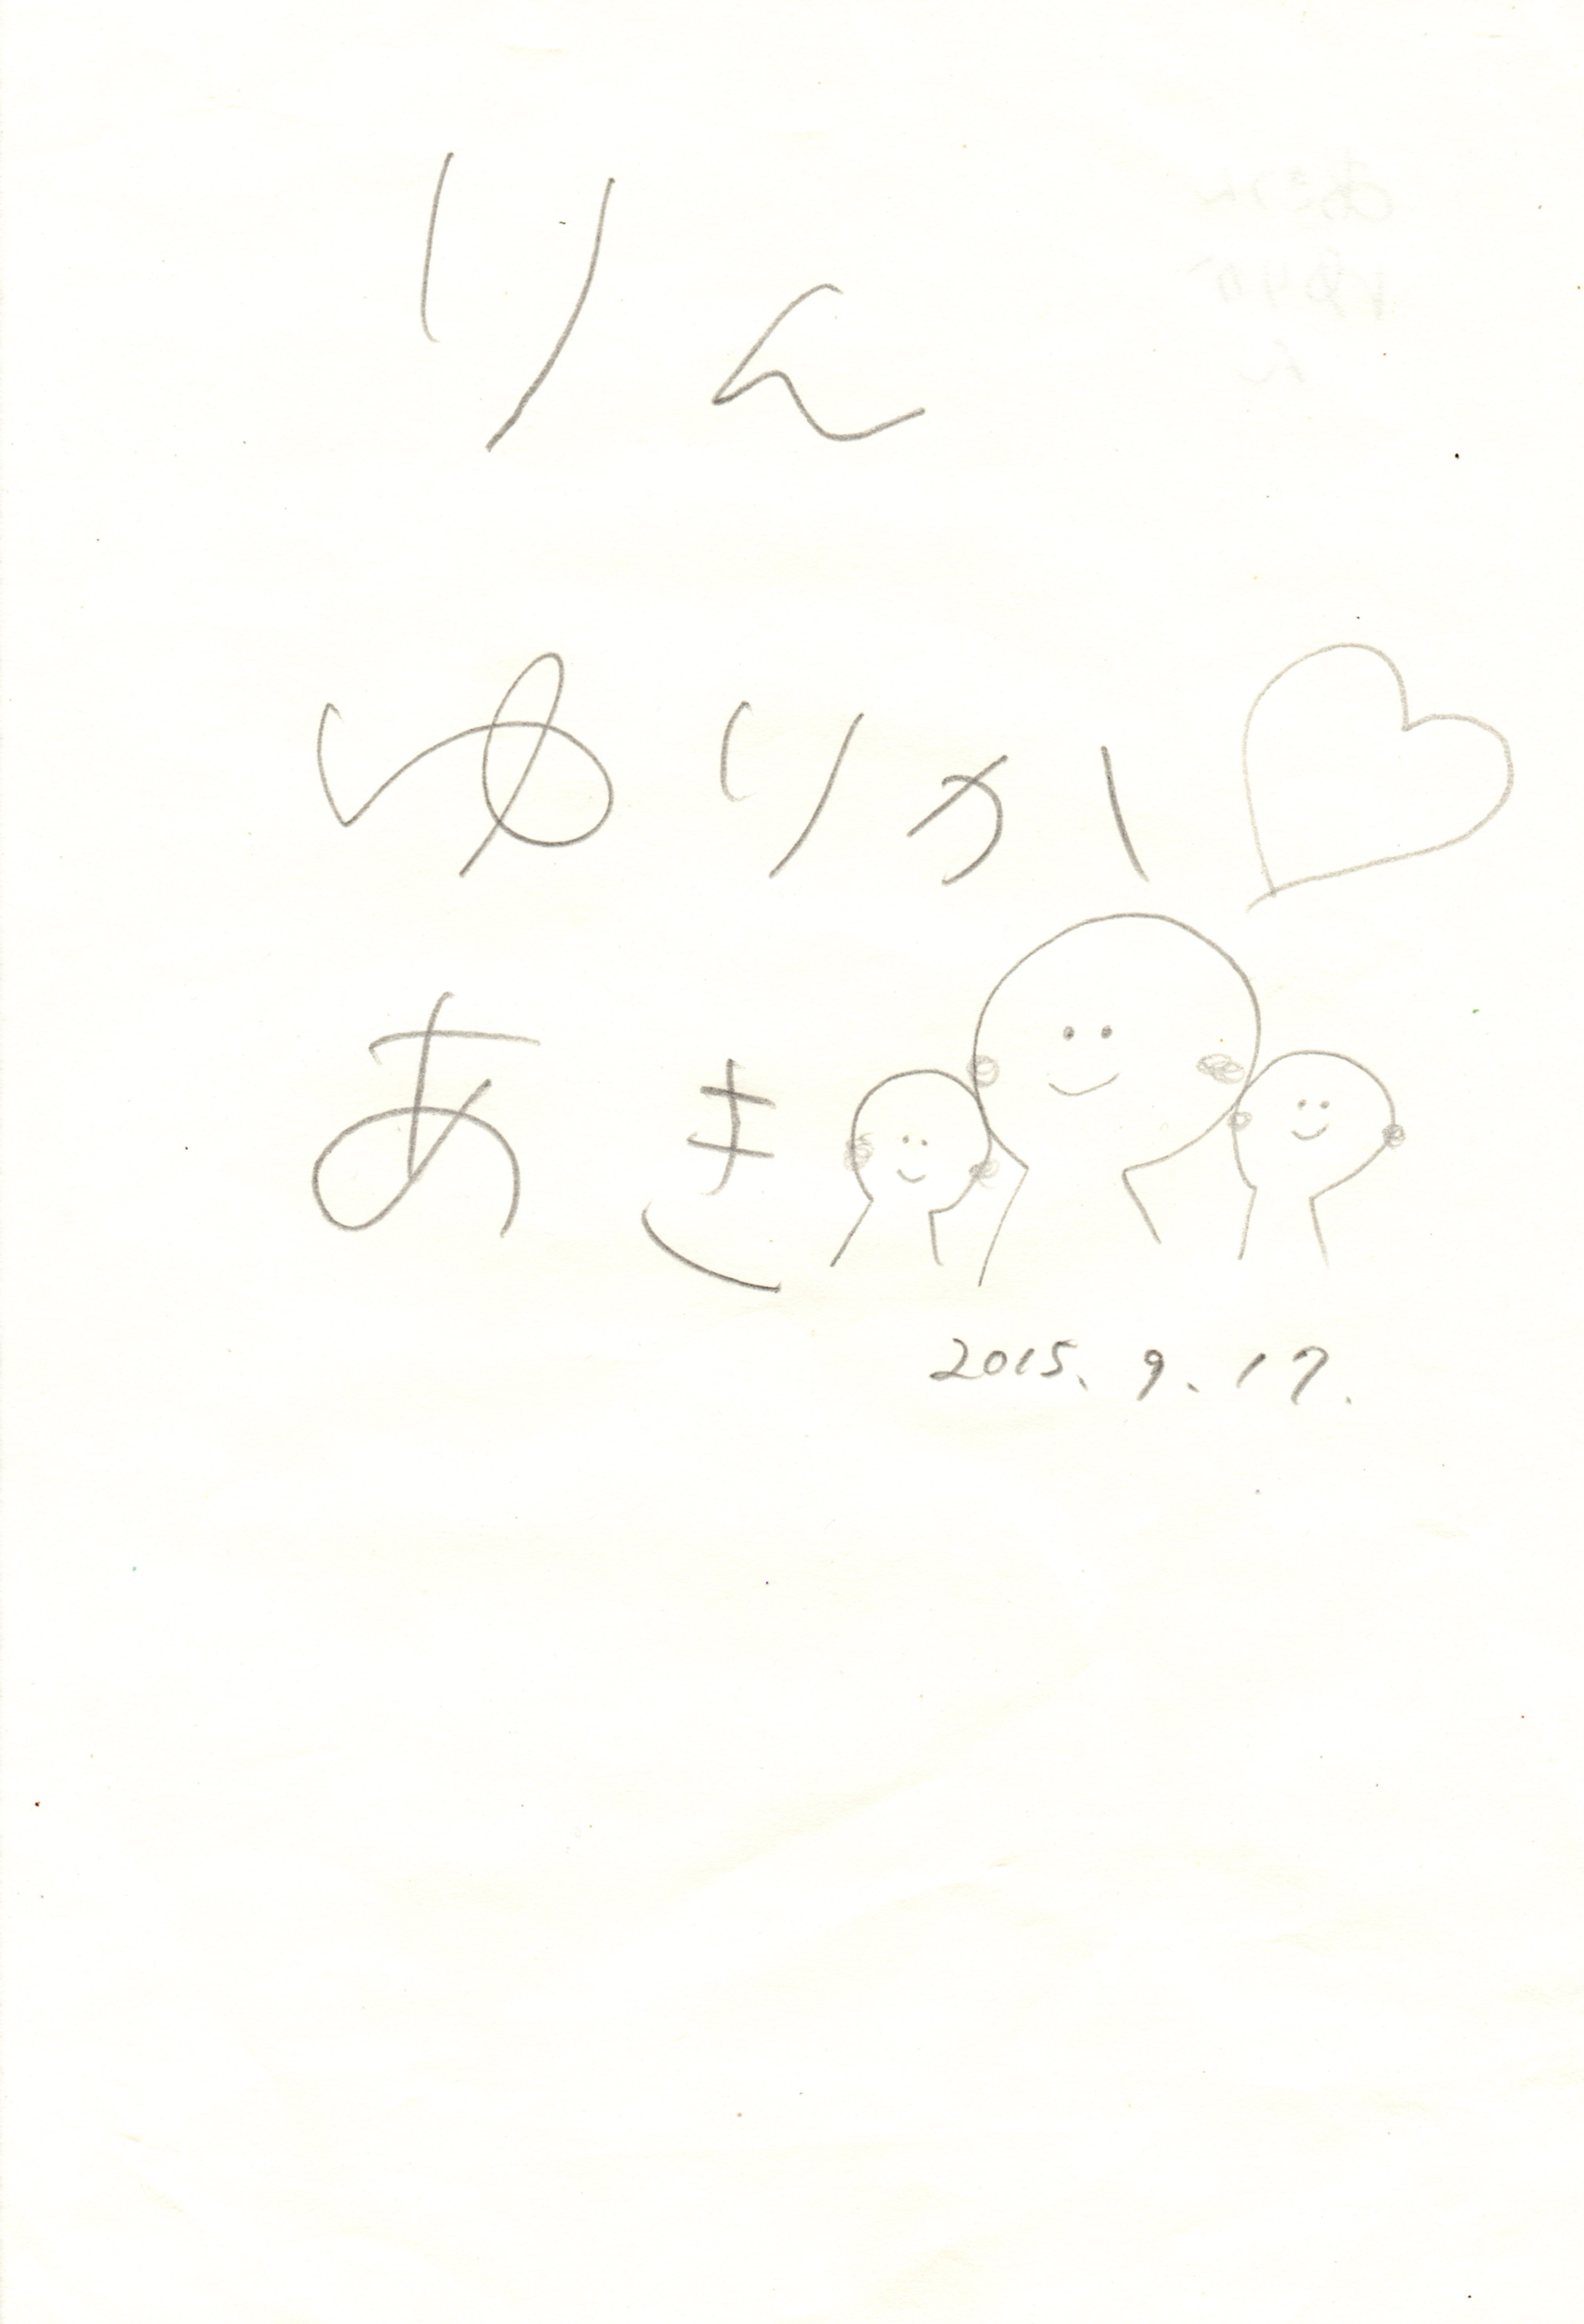 りん
ゆりか
あき
2015.9.17.